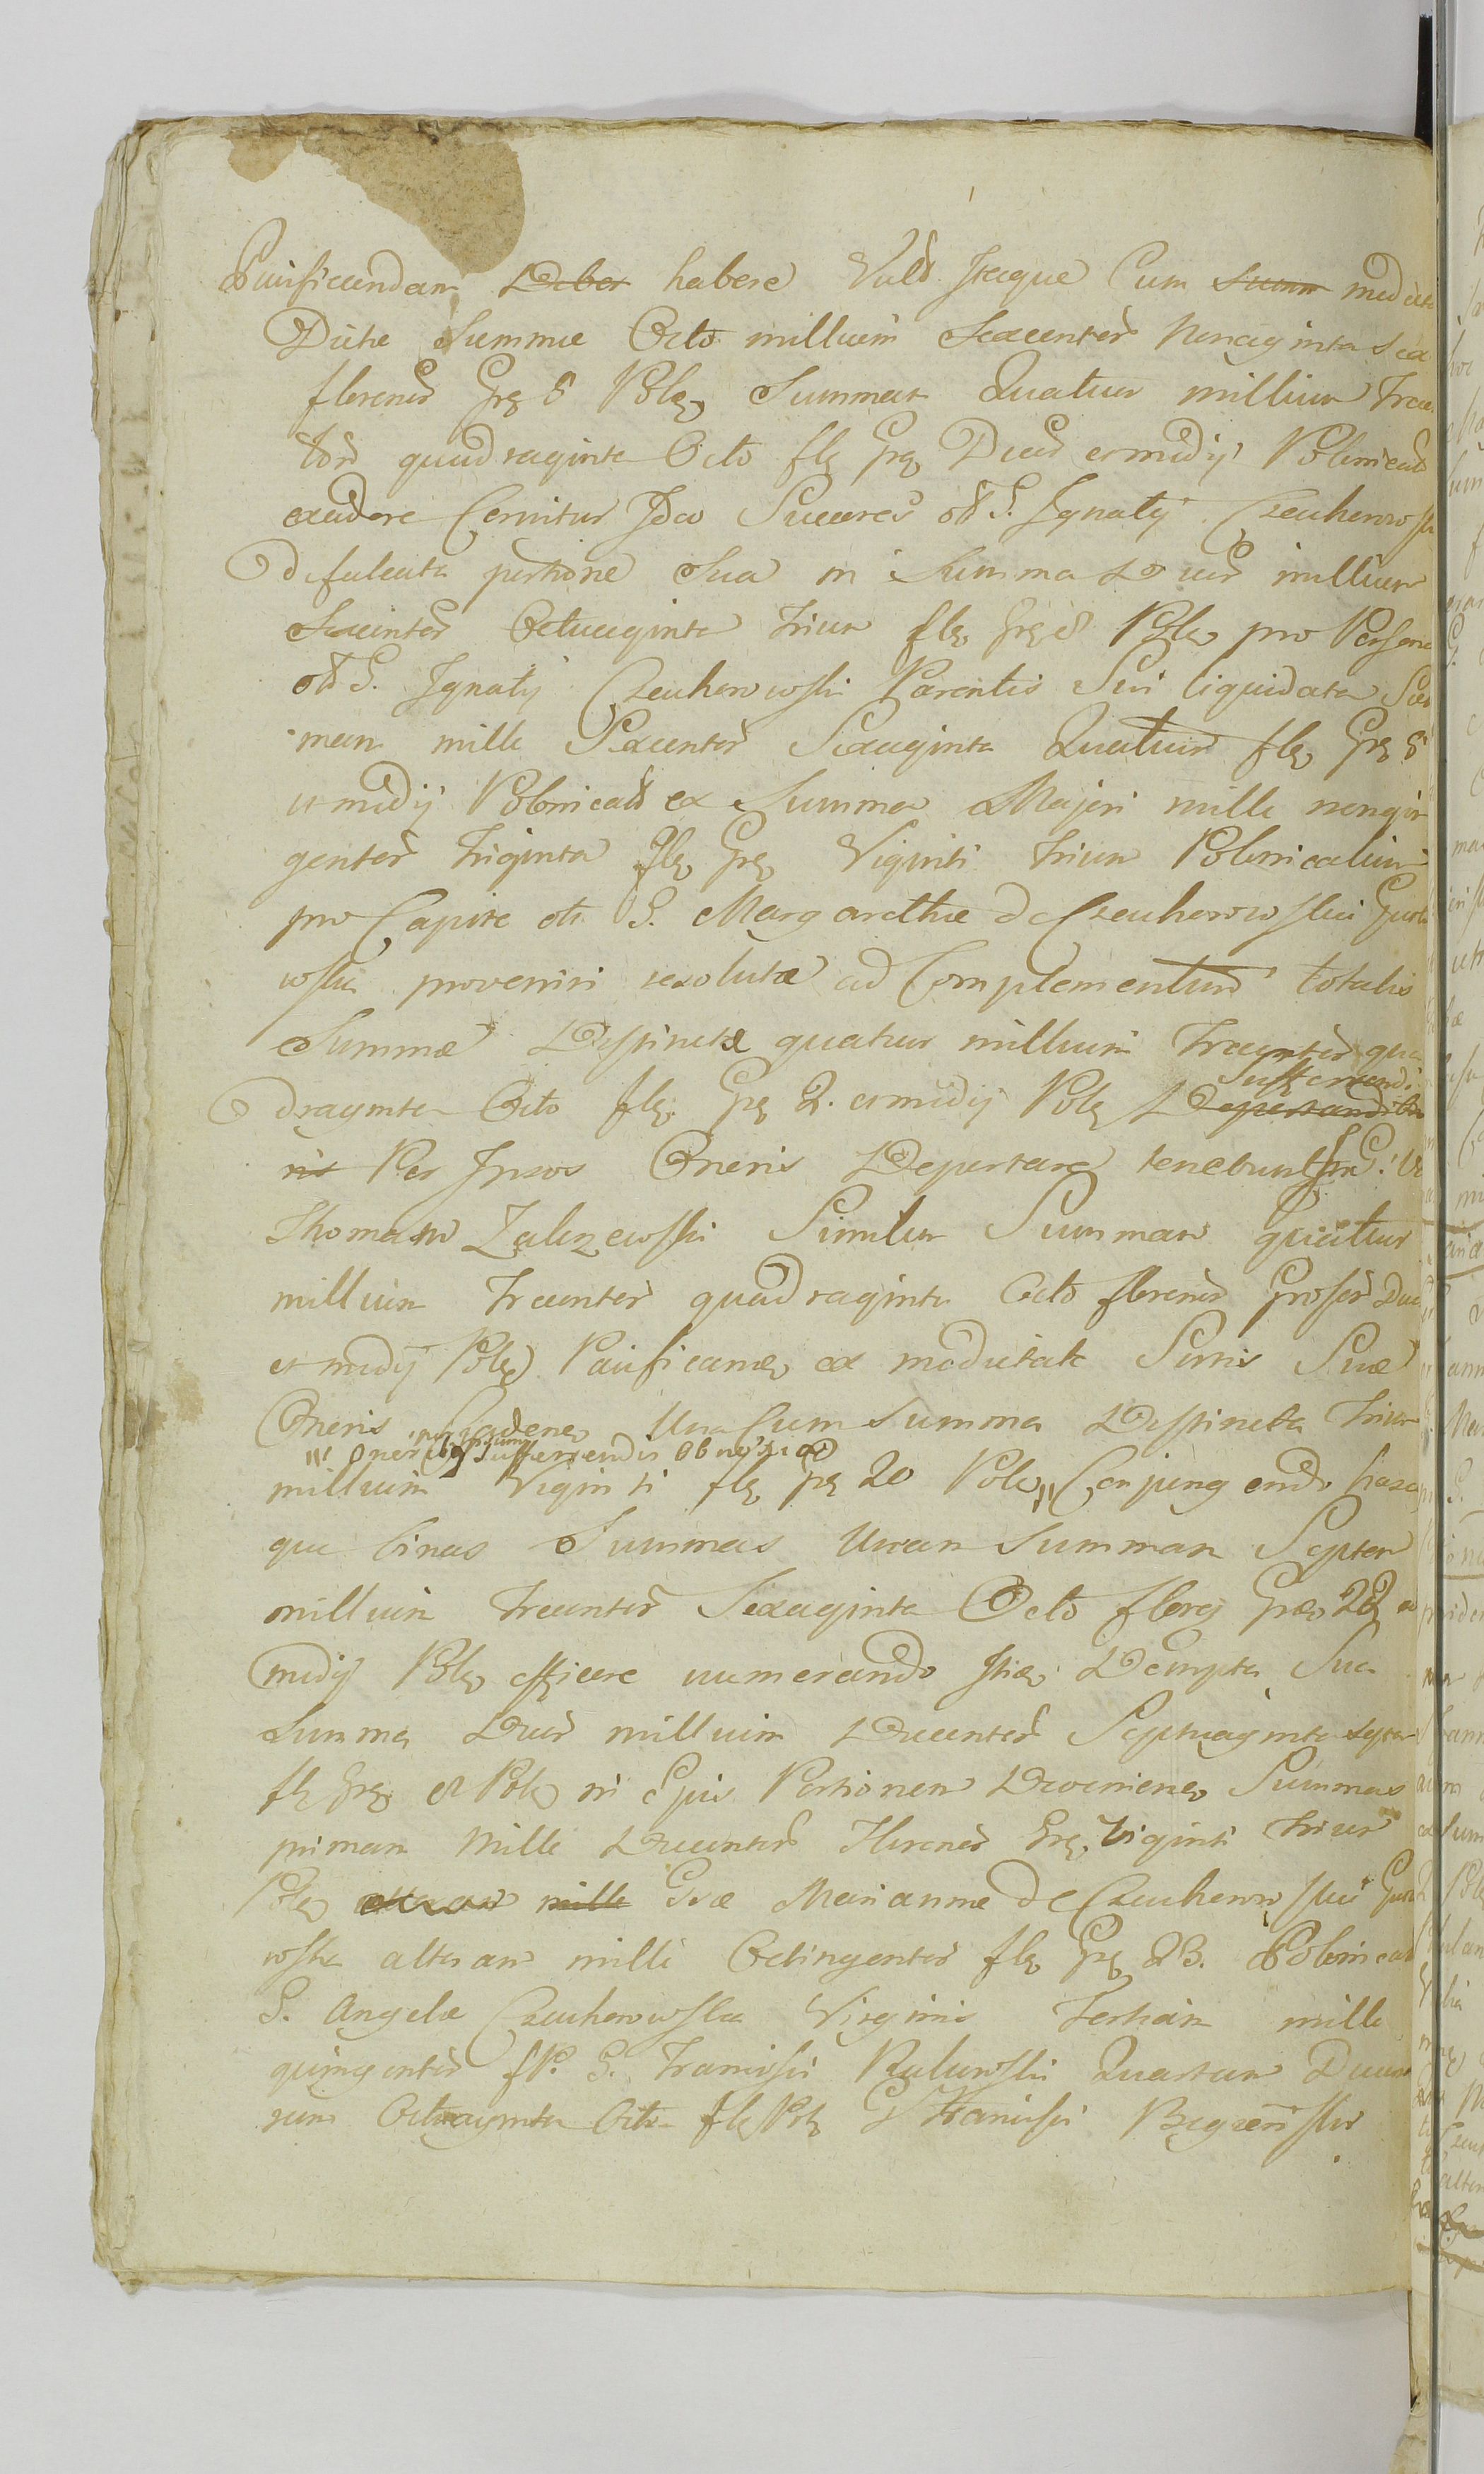 Pacificandam Debet habere Vult Itaque Cum Summ medieta
Dictae Summae Octo millium Sexcentor Nonaginta Sex
florenor Grs 5 Pole, Summam Quatuor millium Trecen
tor quadraginta Octo fle Gre Duor et medij Polonical
excedere Cernitur Ideo Succores olt G. Ignatij Czeuherowski
defalcata portione Sua in Summa Duor millium
Sexcentor Octuaginta Trium fle Gre 8 Pole pro Persona
olt G. Ignatij Czeuherowski Parentis Sui liquidata Sum
mam mille Sexcentor Sexaginta Quatuor fle Gre 8
et medij Polonicalt ex Summa Majori mille nongin
gentor Triginta fle Gre Viginti trium Polonicalium
pro Capite olt G. Margarethae de Czeuherowskie Gur
wska proveniri resolutae ad Complementum totalis
Summae Destinctae quatuor millium Trecentor qua
Sufferendi
draginta Octo fle Gre 2. et medij Pole Deportandi
ris Per Ipsos Oneris Deportare tenebuntur G. Ur
Thomam Zaluzewski Similem Summam quatuor
millium Trecentor quadraginta Octo florenor Grossor Duor
et medij Pole Pacificanae ex medietate Sortis Suae
Oneris Una Cum Summa Destincta Trium
"' Oneribus Sufferendis Obnoxiae
millium Viginti fle gre 20 Pole "' Conjungendo hasce
que binas Summas Unam Summam Septem
millium Trecentor Sexaginta Octo floreg Gros 22 et
medij Pole efficere numerando Dempta Sua
Summa Duor millium Ducentor Septuaginta septem
fle Gre et Pole in Ejus Portionem Devenienes Summas
primam Mille Ducentor florenor Gre Viginti Trium
Pole mille Gsae Mariannae de Czeuherowskie Gur
wska alteram mille Octingentor fle Gre 23. Polonical
G. Angelae Czeuherowska Virginis Tertiam mille
quingentor fP. G. Francisci Rutkowski Quartam Ducen
rum Octuaginta Octo fle Pole G Francisci